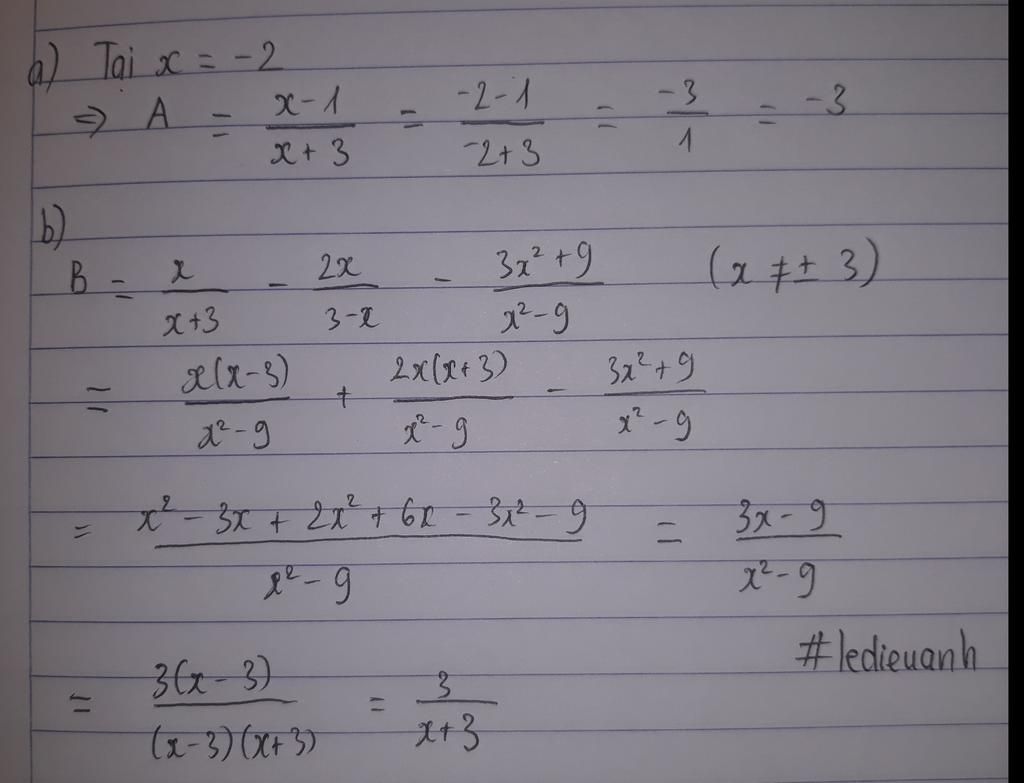 a) Tại x = -2
⇒ A = (x-1)/(x+3) = (-2-1)/(-2+3) = -3/1 = -3
b)
B = x/(x+3) - 2x/(3-x) - (3x²+9)/(x²-9) (x ≠ ± 3)
= x(x-3)/(x²-9) + 2x(x+3)/(x²-9) - (3x²+9)/(x²-9)
= (x² - 3x + 2x² + 6x - 3x² - 9)/(x²-9) = (3x-9)/(x²-9)
#ledieuanh
= 3(x-3)/((x-3)(x+3)) = 3/(x+3)